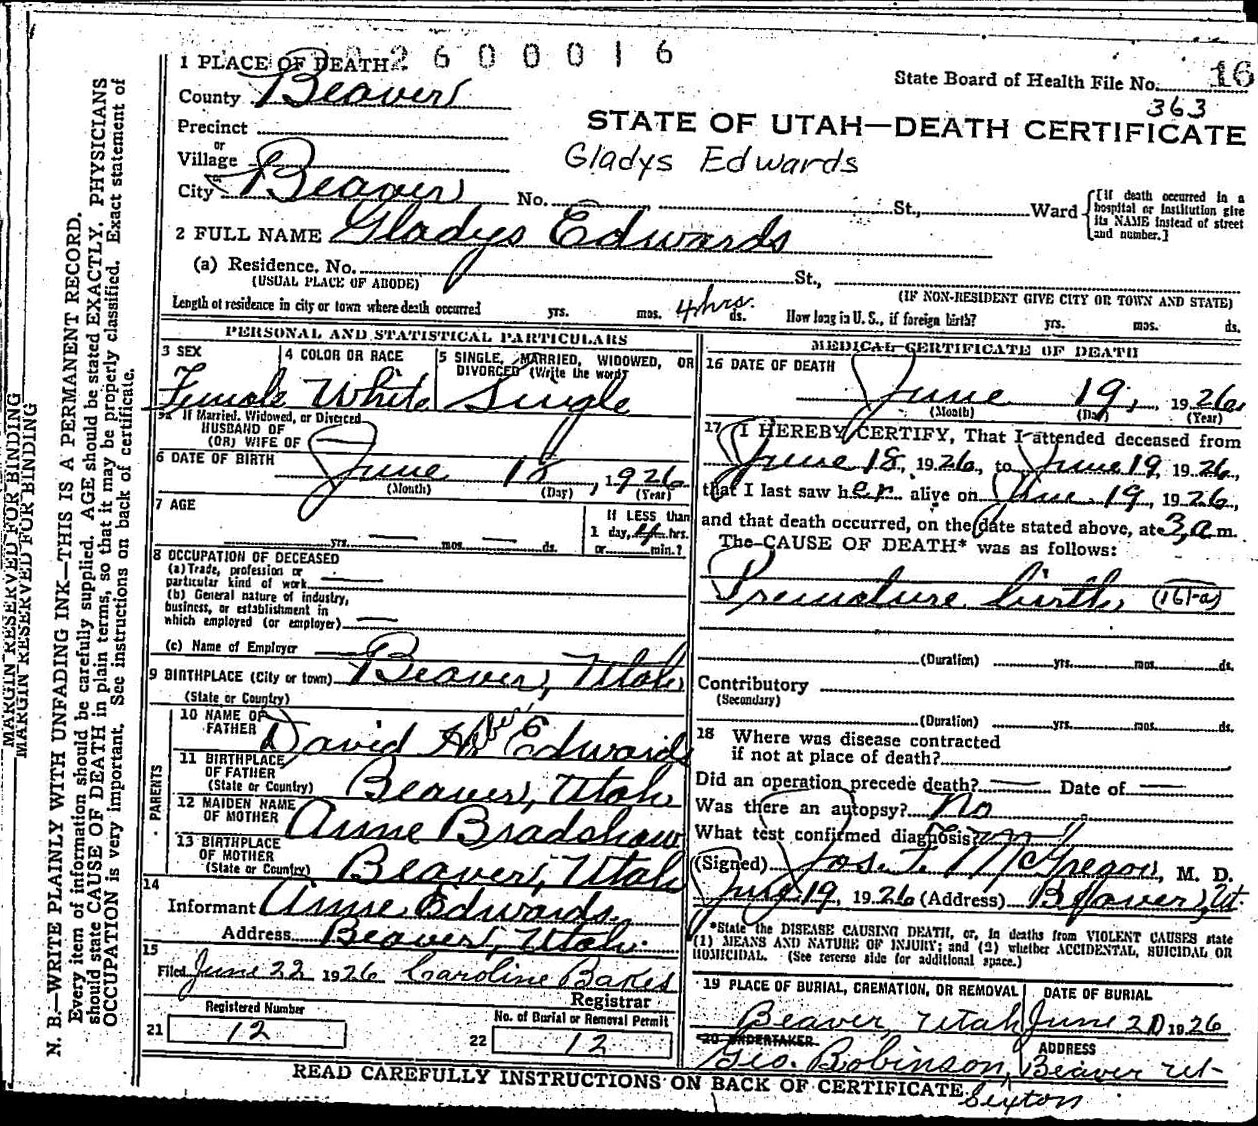 2600016
1 PLACE OF DEATH
State Board of Health File No. 16
County Beaver
363
STATE OF UTAH—DEATH CERTIFICATE
Precinct
or
Village
Gladys Edwards
City Beaver No. St., Ward
[If death occurred in a hospital or institution give its NAME instead of street and number.]
2 FULL NAME Gladys Edwards
(a) Residence. No. St.,
(USUAL PLACE OF ABODE) (IF NON-RESIDENT GIVE CITY OR TOWN AND STATE)
Length of residence in city or town where death occurred yrs. mos. 4 hrs. ds. How long in U. S., if foreign birth? yrs. mos. ds.
PERSONAL AND STATISTICAL PARTICULARS
3 SEX 4 COLOR OR RACE 5 SINGLE, MARRIED, WIDOWED, OR
DIVORCED (Write the word)
Female White Single
5a If Married, Widowed, or Divorced
HUSBAND OF
(OR) WIFE OF
6 DATE OF BIRTH June 18, 1926
(Month) (Day) (Year)
7 AGE
yrs. mos. ds.
If LESS than
1 day, hrs.
or min.?
8 OCCUPATION OF DECEASED
(a) Trade, profession or
particular kind of work
(b) General nature of industry,
business, or establishment in
which employed (or employer)
(c) Name of Employer
9 BIRTHPLACE (City or town) Beaver, Utah
(State or Country)
PARENTS
10 NAME OF
FATHER David Edwards
11 BIRTHPLACE
OF FATHER
(State or Country) Beaver, Utah
12 MAIDEN NAME
OF MOTHER Anne Bradshaw
13 BIRTHPLACE
OF MOTHER
(State or Country) Beaver, Utah
14
Informant Anne Edwards
Address Beaver, Utah.
15
Filed June 22 1926 Caroline Bakes
Registrar
Registered Number No. of Burial or Removal Permit
21 12 22 12
MEDICAL CERTIFICATE OF DEATH
16 DATE OF DEATH
June 19, 1926
(Month) (Day) (Year)
17 I HEREBY CERTIFY, That I attended deceased from
June 18, 1926, to June 19, 1926,
that I last saw her alive on June 19, 1926,
and that death occurred, on the date stated above, at 3 a m.
The CAUSE OF DEATH* was as follows:
Premature birth (161-a)
(Duration) yrs. mos. ds.
Contributory
(Secondary)
(Duration) yrs. mos. ds.
18 Where was disease contracted
if not at place of death?
Did an operation precede death? Date of
Was there an autopsy? No
What test confirmed diagnosis?
(Signed) Jos. T. McGregor, M. D.
19, 1926 (Address) Beaver, Ut.
*State the DISEASE CAUSING DEATH, or, in deaths from VIOLENT CAUSES state
(1) MEANS AND NATURE OF INJURY; and (2) whether ACCIDENTAL, SUICIDAL OR
HOMICIDAL. (See reverse side for additional space.)
19 PLACE OF BURIAL, CREMATION, OR REMOVAL DATE OF BURIAL
Beaver, Utah June 20 1926
20 UNDERTAKER ADDRESS
Geo. Robinson, Beaver Ut-
Sexton
READ CAREFULLY INSTRUCTIONS ON BACK OF CERTIFICATE.
MARGIN RESERVED FOR BINDING
MARGIN RESERVED FOR BINDING
N. B.—WRITE PLAINLY WITH UNFADING INK—THIS IS A PERMANENT RECORD.
Every item of information should be carefully supplied. AGE should be stated EXACTLY. PHYSICIANS
should state CAUSE OF DEATH in plain terms, so that it may be properly classified. Exact statement of
OCCUPATION is very important. See instructions on back of certificate.